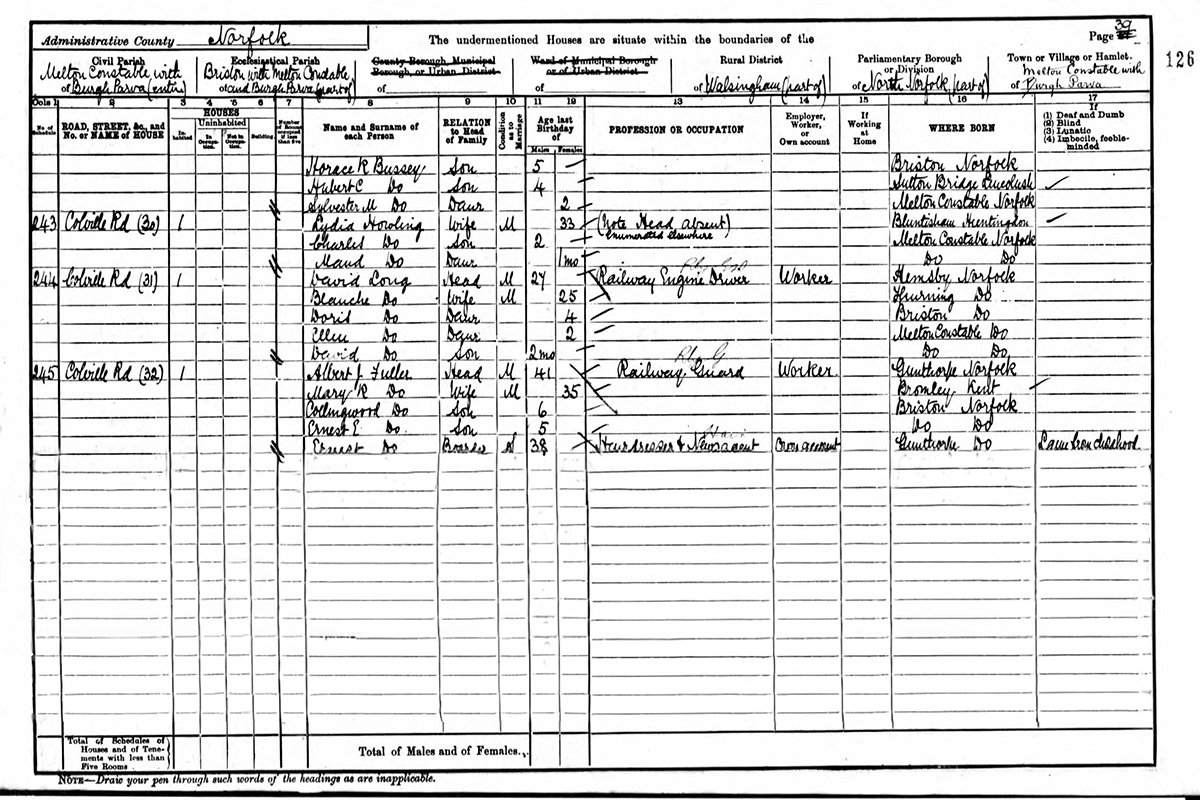 Administrative County Norfolk
The undermentioned Houses are situate within the boundaries of the
Page 39
126
Civil Parish
of Melton Constable with Burgh Parva (entire)
Ecclesiastical Parish
of Briston with Melton Constable and Burgh Parva (part of)
County Borough, Municipal Borough, or Urban District
of
Ward of Municipal Borough or of Urban District
of
Rural District
of Walsingham (part of)
Parliamentary Borough or Division
of North Norfolk (part of)
Town or Village or Hamlet.
of Melton Constable with Burgh Parva
Cols 1 2 3 4 5 6 7 8 9 10 11 12 13 14 15 16 17
No. of Schedule
ROAD, STREET, &c., and No. or NAME of HOUSE
HOUSES
Inhabited
Uninhabited
In Occupation.
Not in Occupation.
Building
Number of Rooms occupied if less than five
Name and Surname of each Person
RELATION to Head of Family
Condition as to Marriage
Age last Birthday of
Males Females
PROFESSION OR OCCUPATION
Employer, Worker, or Own account
If Working at Home
WHERE BORN
If
(1) Deaf and Dumb
(2) Blind
(3) Lunatic
(4) Imbecile, feeble-minded
Horace R Bussey Son 5 Briston Norfolk
Hubert C Do Son 4 Sutton Bridge
Sylvester M Do Daur 2 Melton Constable Norfolk
243 Colville Rd (30) 1 Lydia Howling Wife M 33 (Note Head absent) enumerated elsewhere Bluntisham Huntingdon
Charles Do Son 2 Melton Constable Norfolk
Maud Do Daur 1mo Do Do
244 Colville Rd (31) 1 David Long Head M 27 Railway Engine Driver Worker Hemsby Norfolk
Blanche Do Wife M 25 Thurning Do
Doris Do Daur 4 Briston Do
Ellen Do Daur 2 Melton Constable Do
David Do Son 2mo Do Do
245 Colville Rd (32) 1 Albert J Fuller Head M 41 Railway Guard Worker Gunthorpe Norfolk
Mary R Do Wife M 35 Bromley Kent
Collingwood Do Son 6 Briston Norfolk
Ernest E Do Son 5 Do Do
Ernest Do Boarder S 38 Hairdresser & Newsagent Own account Gunthorpe Do Lame from childhood
Total of Schedules of Houses and of Tenements with less than Five Rooms
Total of Males and of Females..
NOTE—Draw your pen through such words of the headings as are inapplicable.